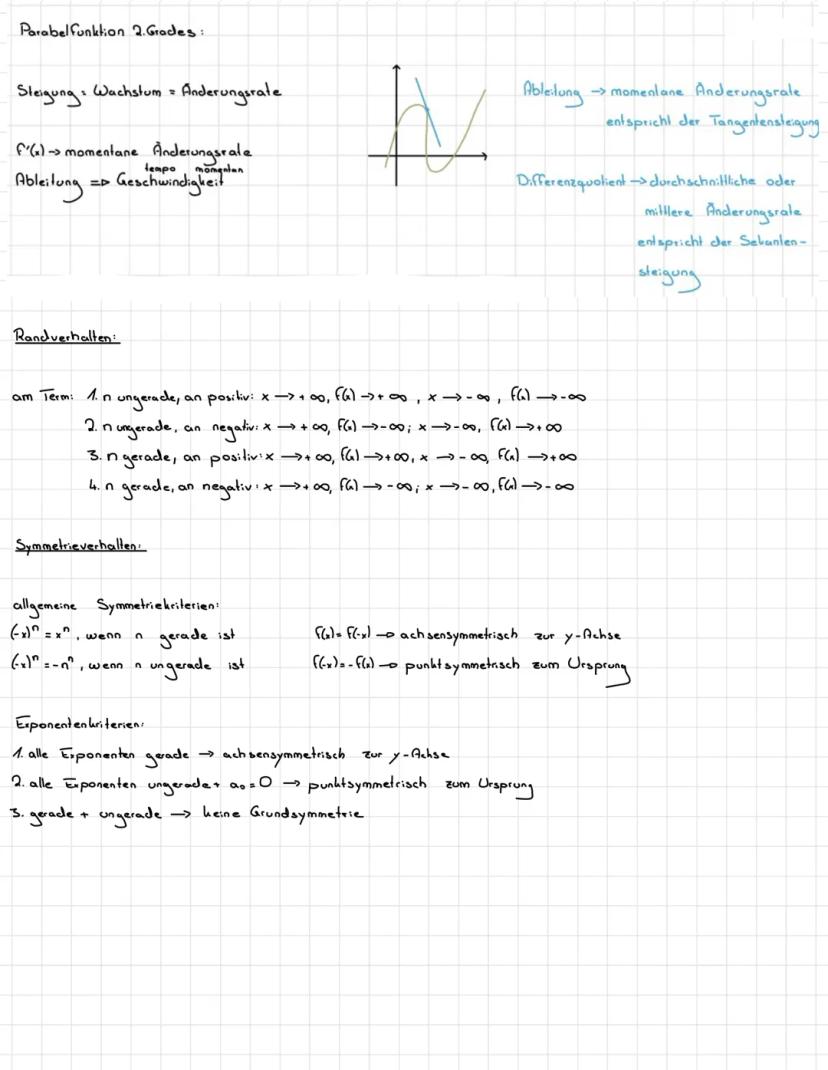 Parabelfunktion 2. Grades:
Steigung = Wachstum = Änderungsrate
f'(x) → momentane Änderungsrate
tempo momentan
Ableitung => Geschwindigkeit
Ableitung → momentane Änderungsrate
entspricht der Tangentensteigung
Differenzquotient → durchschnittliche oder
mittlere Änderungsrate
entspricht der Sekanten-
steigung
Randverhalten:
am Term: 1. n ungerade, an positiv: x → +∞, f(x) → +∞, x → -∞, f(x) → -∞
2. n ungerade, an negativ: x → +∞, f(x) → -∞; x → -∞, f(x) → +∞
3. n gerade, an positiv: x → +∞, f(x) → +∞, x → -∞, f(x) → +∞
4. n gerade, an negativ: x → +∞, f(x) → -∞; x → -∞, f(x) → -∞
Symmetrieverhalten:
allgemeine Symmetriekriterien:
(-x)ⁿ = xⁿ, wenn n gerade ist f(x) = f(-x) → achsensymmetrisch zur y-Achse
(-x)ⁿ = -nⁿ, wenn n ungerade ist f(-x) = -f(x) → punktsymmetrisch zum Ursprung
Exponentenkriterien:
1. alle Exponenten gerade → achsensymmetrisch zur y-Achse
2. alle Exponenten ungerade + a₀ = 0 → punktsymmetrisch zum Ursprung
3. gerade + ungerade → keine Grundsymmetrie